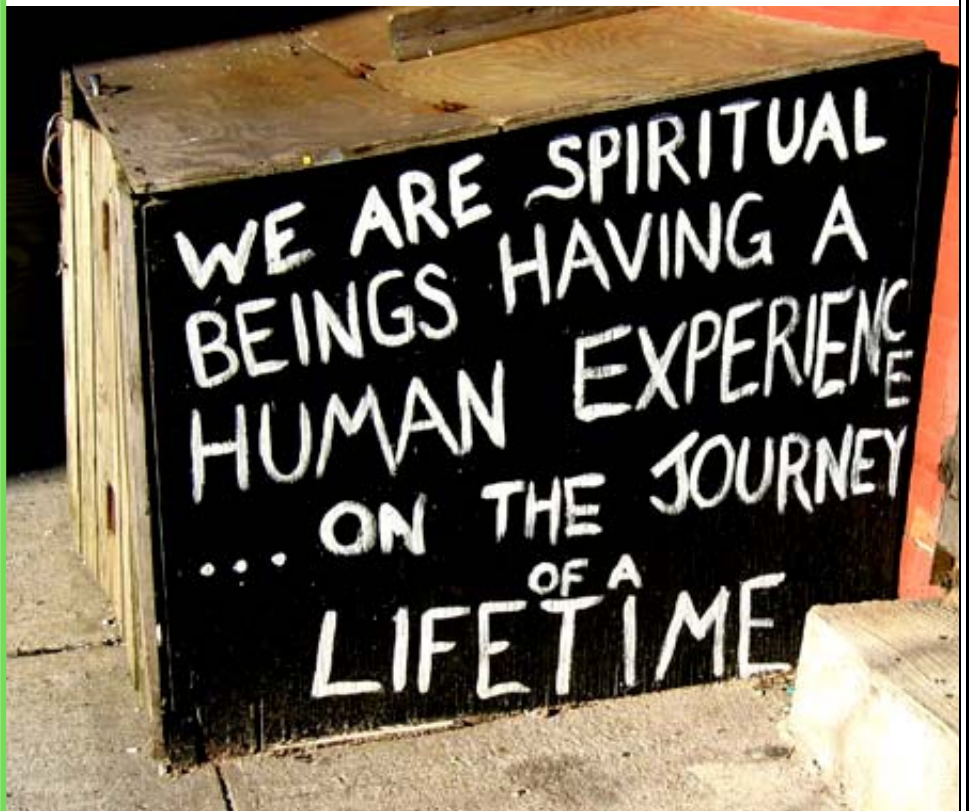 WE ARE SPIRITUAL
BEINGS HAVING A
HUMAN EXPERIENCE
... ON THE JOURNEY
OF A
LIFETIME